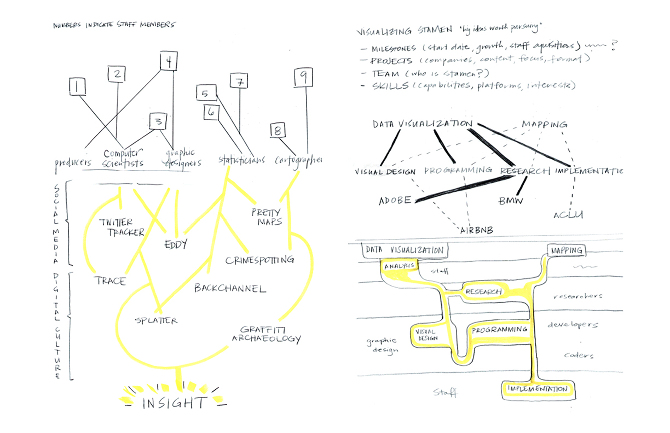 NUMBERS INDICATE STAFF MEMBERS
1
2
4
3
5
6
7
8
9
producers
computer scientists
graphic designers
statisticians
cartographer
SOCIAL MEDIA
DIGITAL CULTURE
TWITTER TRACKER
EDDY
PRETTY MAPS
CRIMESPOTTING
TRACE
BACKCHANNEL
SPLATTER
GRAFFITI ARCHAEOLOGY
INSIGHT
VISUALIZING STAMEN "big ideas worth pursuing"
- MILESTONES (start date, growth, staff aquisitions) ?
- PROJECTS (companies, content, focus, format)
- TEAM (who is stamen?)
- SKILLS (capabilities, platforms, interests)
DATA VISUALIZATION MAPPING
VISUAL DESIGN PROGRAMMING RESEARCH IMPLEMENTATIO
ADOBE BMW
ACLU
AIRBNB
DATA VISUALIZATION MAPPING
ANALYSIS staff
RESEARCH
researchers
VISUAL DESIGN PROGRAMMING developers
graphic design
coders
Staff IMPLEMENTATION